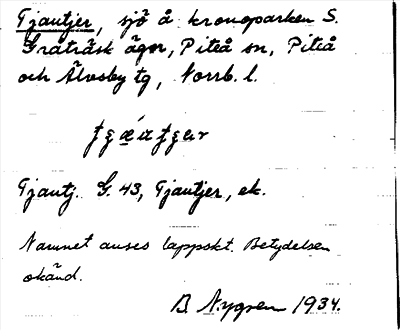 Tjautjer, sjö å kronoparken S.
Gråträsk ägor, Piteå sn, Piteå
och Älvsby tg, Norrb. l.
Tjautj. G. 43, Tjautjer, ek.
Namnet anses lappskt. Betydelsen
okänd.
B. Nygren 1934.